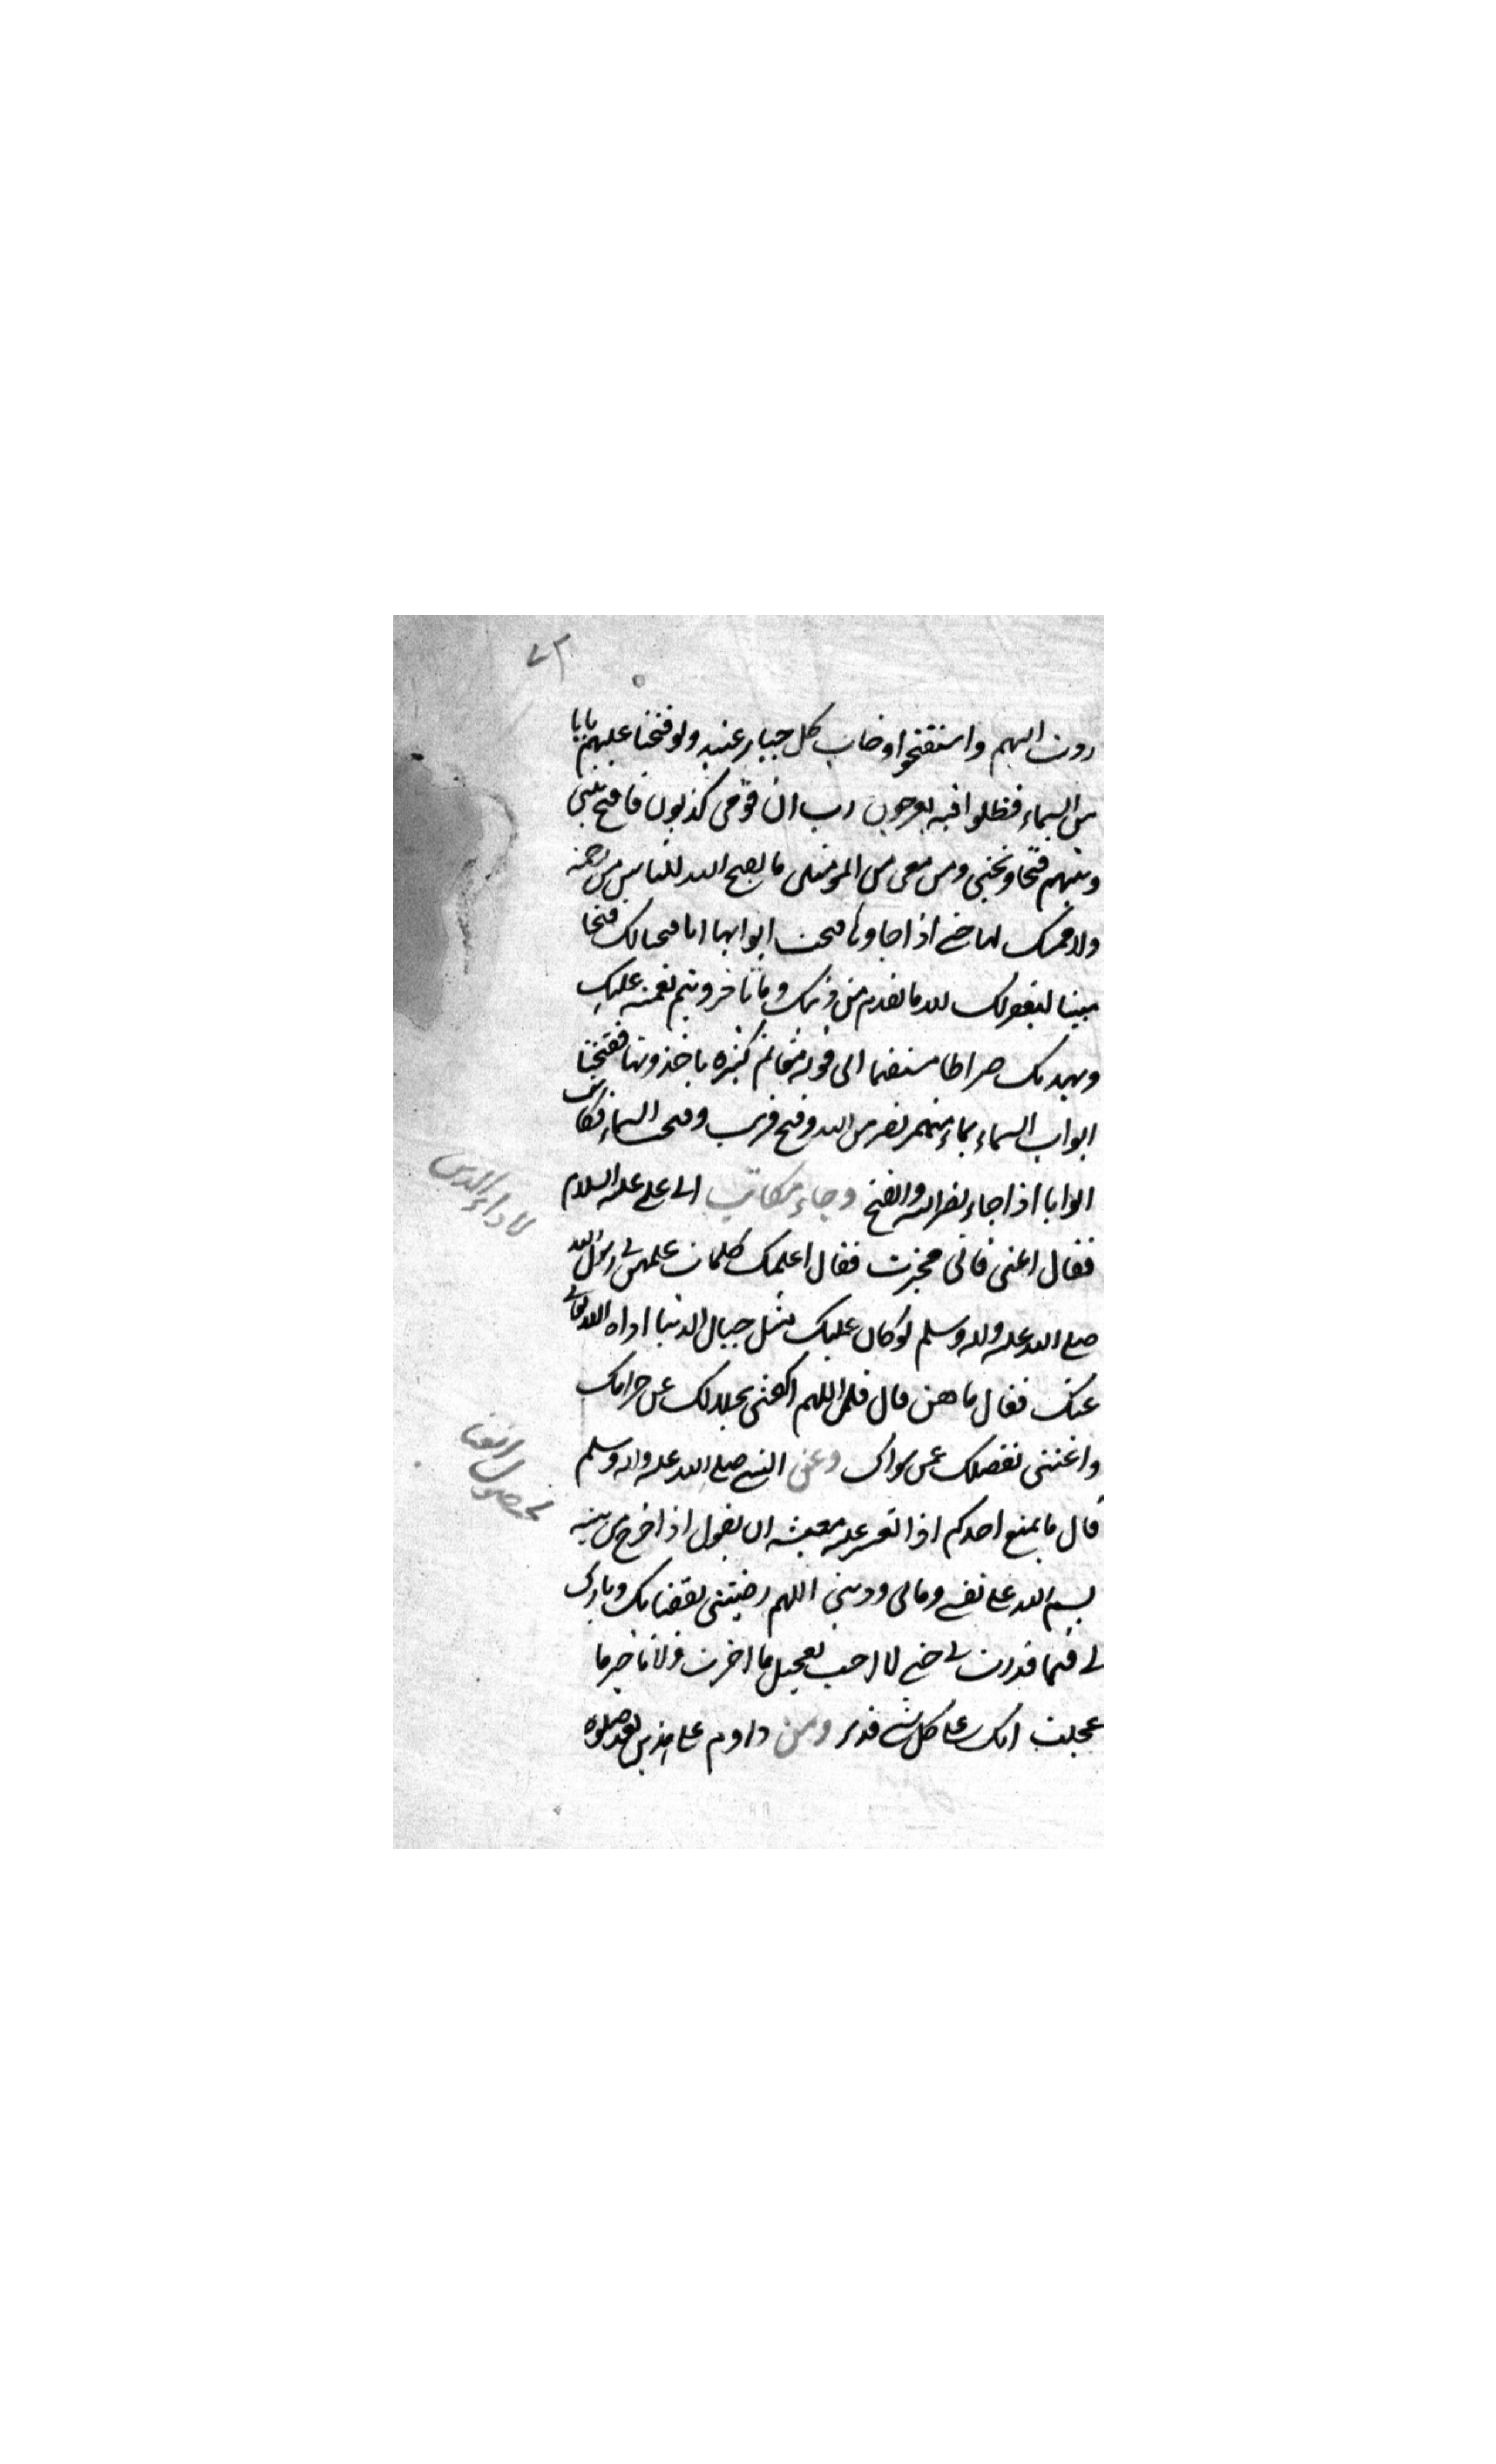 ٧٣
ردت اليهم واستفتحوا وخاب كل جبار عنيد ولو فتحنا عليهم بابا
من السماء فظلوا فيه يعرجون رب ان قومى كذبون فافتح بينى
وبينهم فتحا ونجنى ومن معى من المؤمنين ما يفتح الله للناس من رحمة
ولا ممسك لها حتى اذا جاوها فتحت ابوابها انا فتحنا لك فتحا
مبينا ليغفر لك الله ما تقدم من ذنبك وما تاخر ويتم نعمته عليك
ويهديك صراطا مستقيما الى قوله مغانم كثيرة ياخذونها ففتحنا
ابواب السماء بماء منهمر نصر من الله وفتح قريب وفتحت السماء فكانت
ابوابا اذا جاء نصر الله والفتح وجاء مكاتب الى على عليه السلام
فقال اعنى فانى عجزت فقال اعلمك كلمات علمهن لى رسول الله
صلى الله عليه واله وسلم لو كان عليك مثل جبال الدنيا اداه الله تعالى
عنك فقال ما هن قال قل اللهم اكفنى بحلالك عن حرامك
واغننى بفضلك عن سواك وعن النبى صلى الله عليه واله وسلم
قال ما يمنع احدكم اذا تعسر عليه معيشه ان يقول اذا خرج من بيته
بسم الله على نفسى ومالى ودينى اللهم رضيتنى بقضائك وبارك
لى فيما قدرت لى حتى لا احب تعجيل ما اخرت ولا تاخير ما
عجلت انك على كل شى قدير ومن داوم على هذين بعد صلوة
لاداء الدين
لحصول الغنا